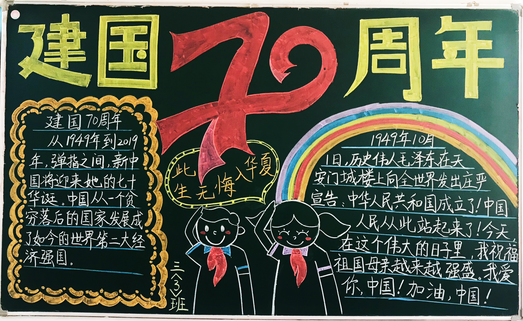 建国70周年
建国70周年
从1949年到2019
年,弹指之间,新中
国将迎来她的七十
华诞,中国从一个贫
穷落后的国家发展成
了如今的世界第二大经
济强国。
此生无悔入华夏
三〈3〉班
1949年10月
1日,历史伟人毛泽东在天
安门城楼上向全世界发出庄严
宣告:中华人民共和国成立了!中国
人民从此站起来了!今天
在这个伟大的日子里,我祝福
祖国母亲越来越强盛,我爱
你,中国!加油,中国!